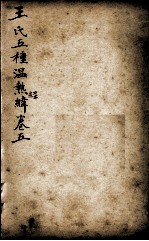 王氏五種溫熱經緯卷五